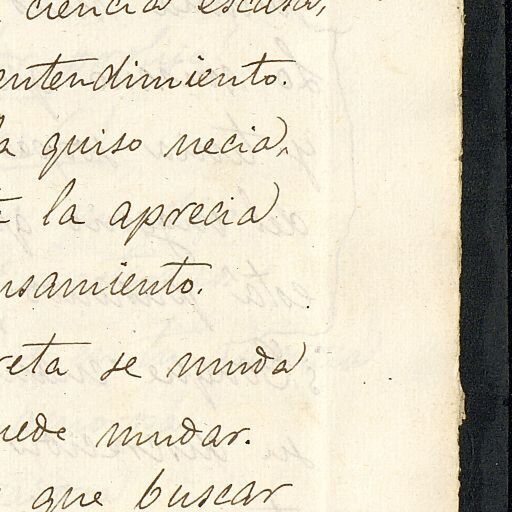 ciencia escasa,
entendimiento.
la quiso necia,
la aprecia
nsamiento.
reta se muda
uede mudar.
que buscar